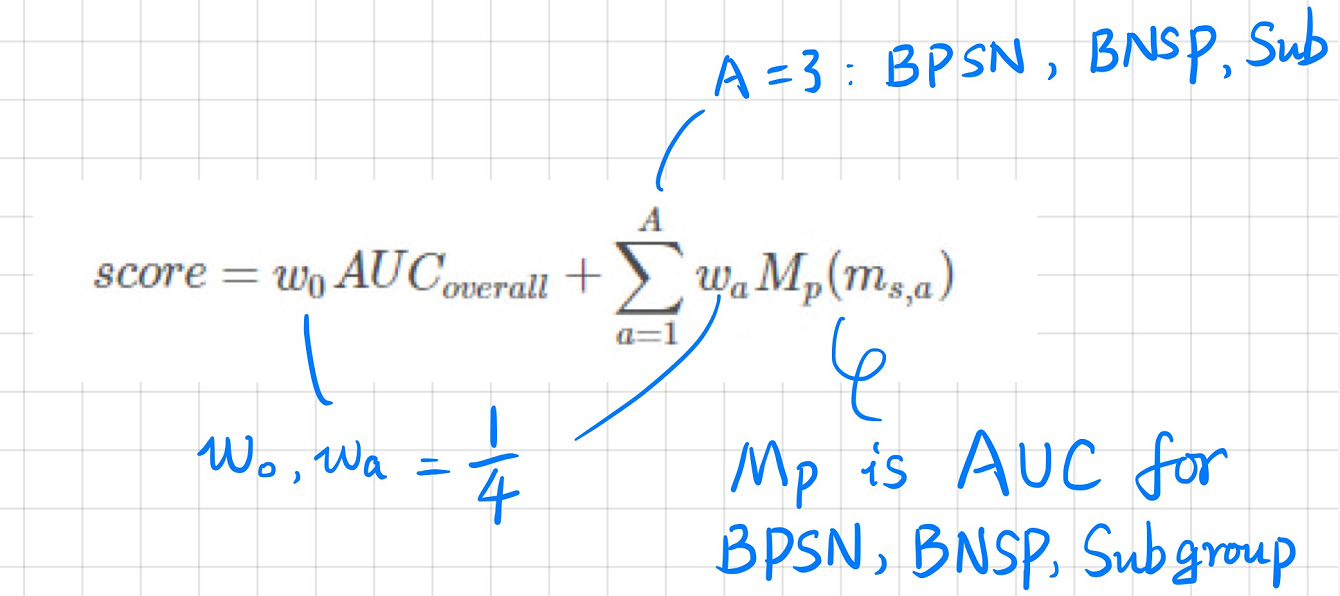 A = 3 : BPSN, BNSP, Sub
score = w₀ AUC_overall + ∑_{a=1}^{A} w_a M_p(m_{s,a})
w₀, wa = 1/4
Mp is AUC for
BPSN, BNSP, Subgroup